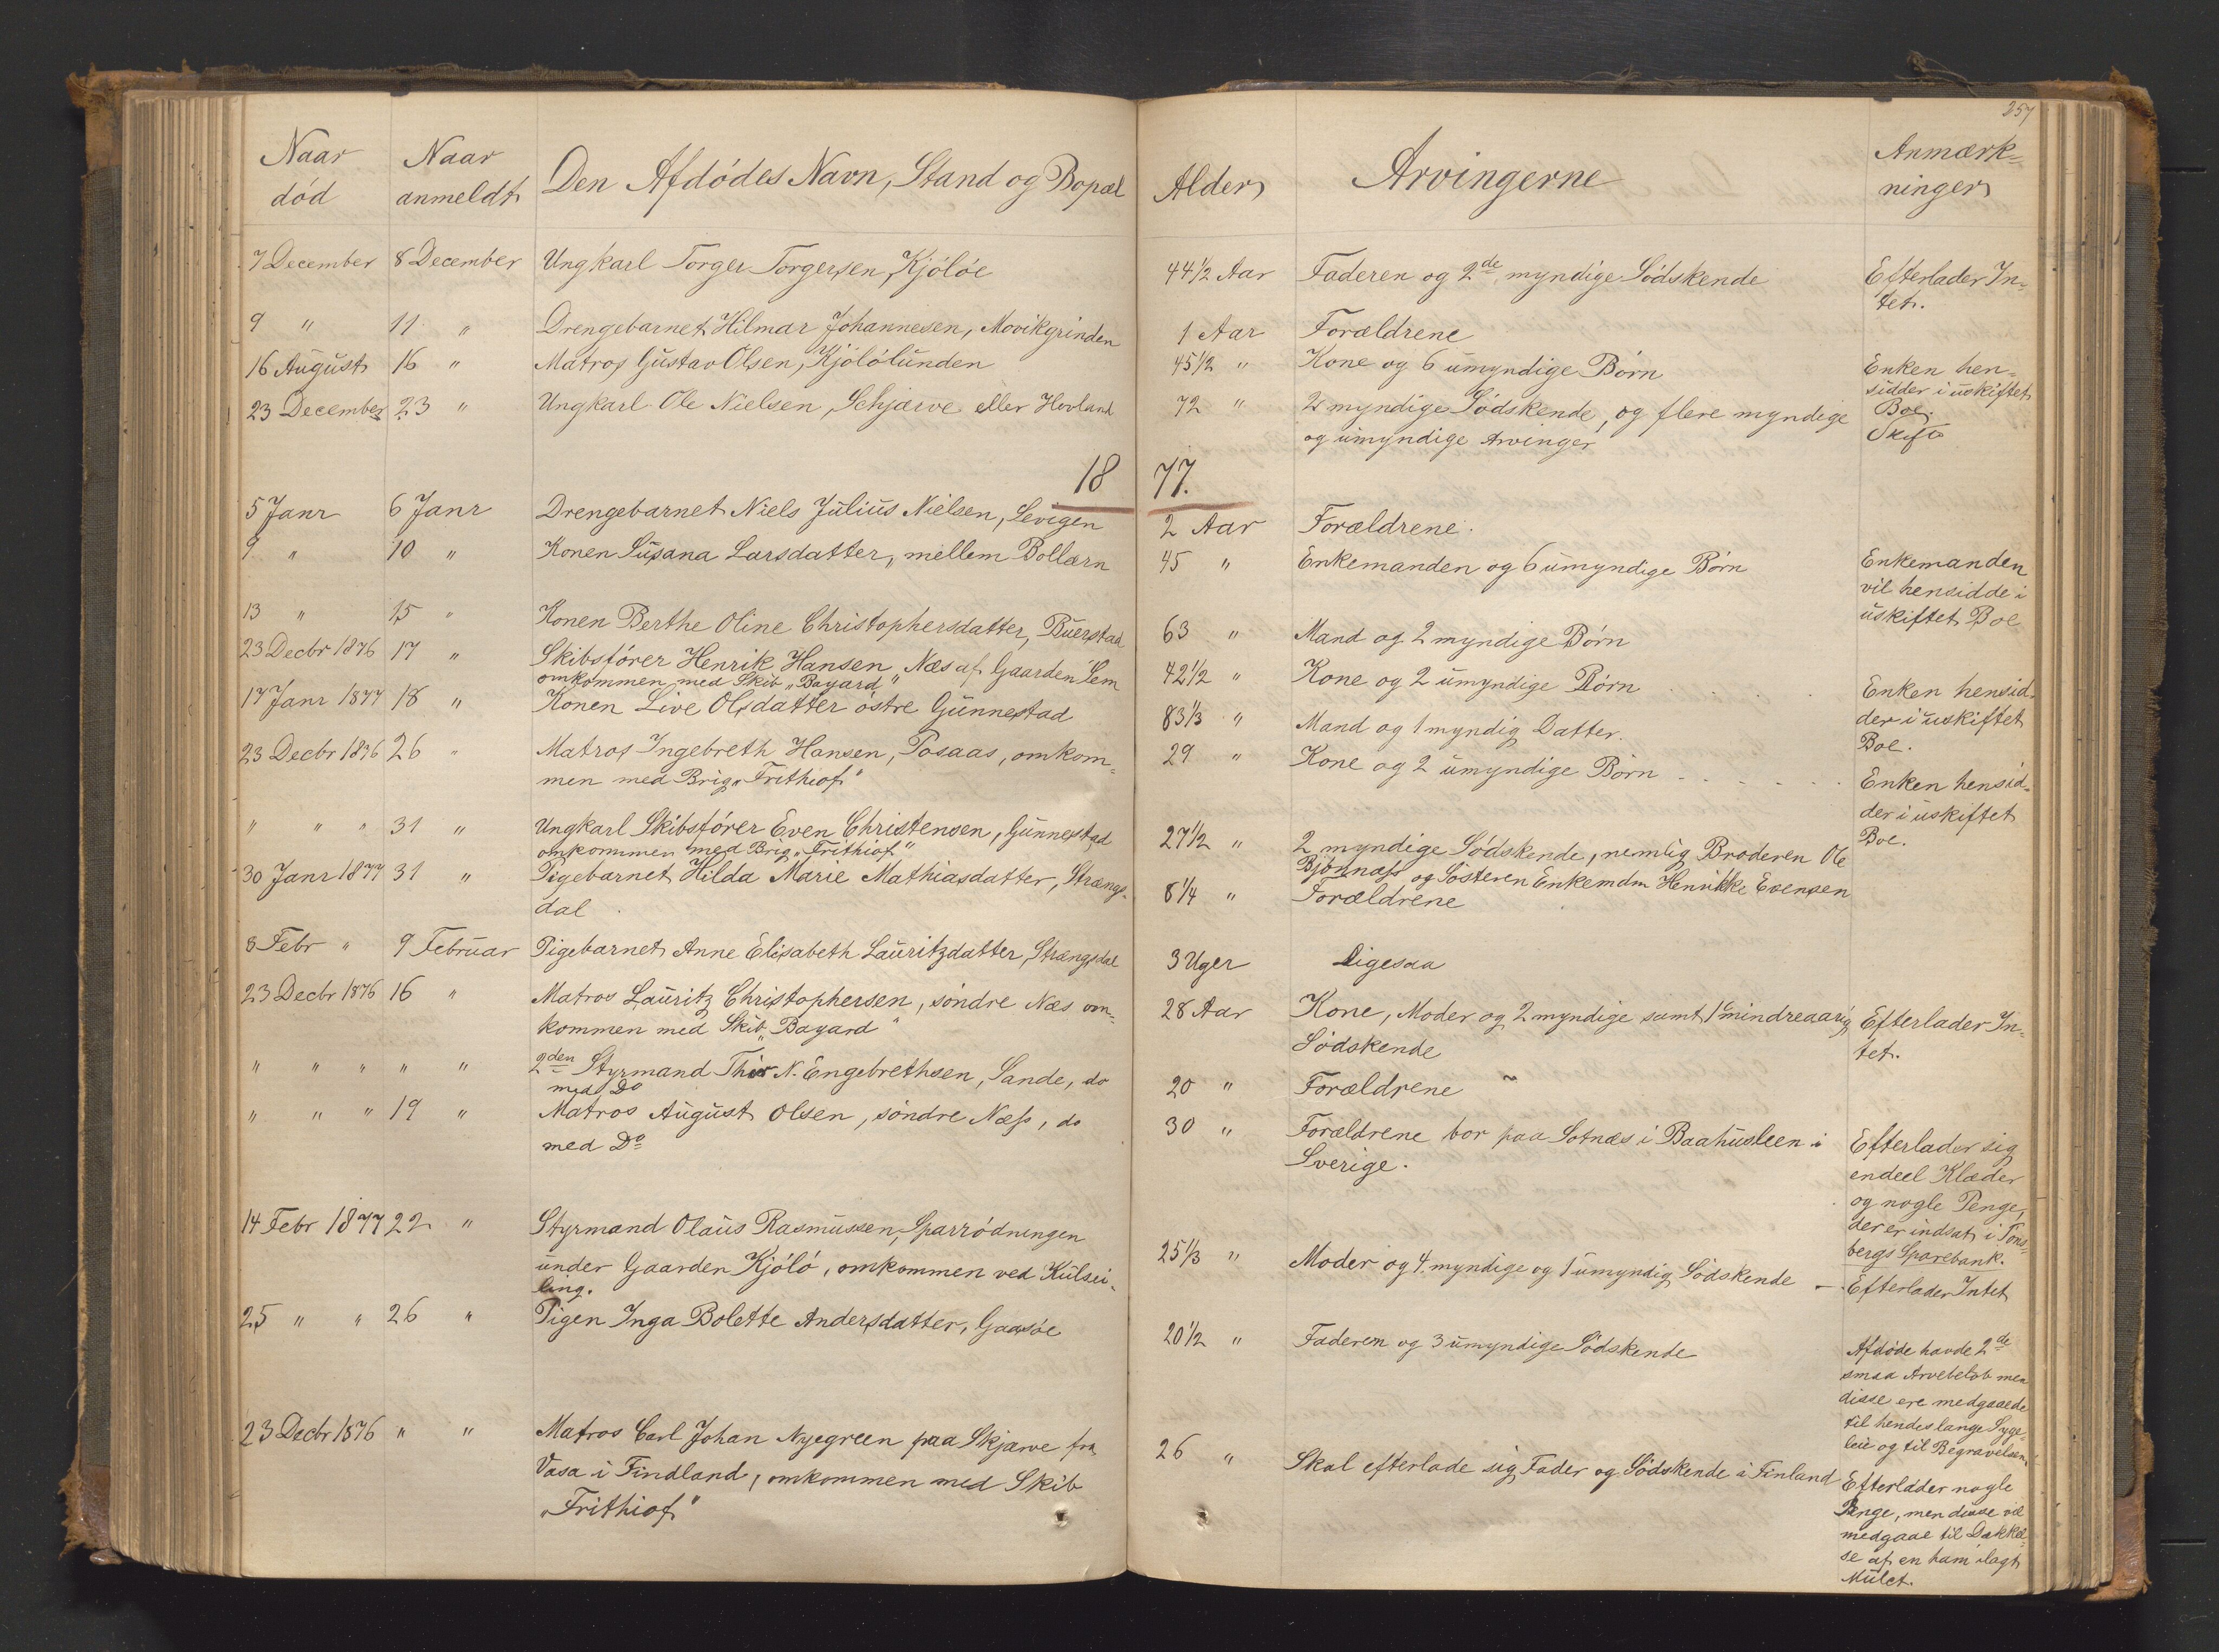 257
Naar død
Naar anmeldt
Den Afdødes Navn, Stand og Bopæl
Alder
Arvingerne
Anmærk=
ninger
7 December 8 December Ungkarl Torger Torgersen, Kjøløe 44½ Aar Faderen og 2de myndige Södskende Efterlader In=
tet.
9 " 11 " Drengebarnet Hilmar Johannesen, Movikgrinden 1 Aar Forældrene
16 August 16 " Matros Gustav Olsen, Kjølölunden 45½ " Kone og 6 umyndige Börn Enken hen=
sidder i uskiftet
Boe.
23 December 23 " Ungkarl Ole Nielsen, Schjærve eller Hovland 72 " 2 myndige Södskende, og flere myndige
og umyndige Arvinger Skifte
1877.
5 Janr 6 Janr Drengebarnet Niels Julius Nielsen, Levegen 2 Aar Forældrene.
9 " 10 " Konen Susana Larsdatter, mellem Bollærn 45 " Enkemanden og 6 umyndige Börn Enkemanden
vil hensidde i
uskiftet Boe
13 " 15 " Konen Berthe Oline Christophersdatter, Buerstad 63 " Mand og 2 myndige Börn
23 Decbr 1876 17 " Skibsförer Henrik Hansen, Næs af Gaarden Sem
omkommen med Skib „Bayard" 42½ " Kone og 2 umyndige Börn . . . . Enken hensid=
der i uskiftet
Boe.
17 Janr 1877 18 " Konen Live Olsdatter östre Gunnestad 83⅓ " Mand og 1 myndig Datter.
23 Decbr 1876 26 " Matros Ingebreth Hansen, Posaas, omkom=
men med Brig „Frithiof" 29 " Kone og 2 umyndige Börn - - - - Enken hensid=
der i uskiftet
Boe.
" " " 31 " Ungkarl Skibsförer Even Christensen, Gunnestad
omkommen med Brig „Frithiof" 27½ " 2 myndige Södskende, nemlig Broderen Ole
Bjönnæss og Sösteren Enkemdm Henrikke Evensen
30 Janr 1877 31 " Pigebarnet Hilda Marie Mathiasdatter, Strængs=
dal 8¼ " Forældrene
8 Febr " 9 Februar Pigebarnet Anne Elisabeth Lauritzdatter, Strængsdal 3 Uger Ligesaa
23 Decbr 1876 16 " Matros Lauritz Christophersen, söndre Næs om=
kommen med Skib „Bayard" 28 Aar Kone, Moder og 2 myndige samt 1 mindreaarig
Södskende Efterlader In=
tet.
" " " " " 2den Styrmand Thor N. Engebrethsen, Sande, do
med Do 20 " Forældrene
" " " 19 " Matros August Olsen, söndre Næss, do
med Do 30 " Forældrene bor paa Sotnæs i Baahusleen i
Sverige. Efterlader sig
endeel Klæder
og nogle Penge,
der er indsat i Töns=
bergs Sparebank.
14 Febr 1877 22 " Styrmand Olaus Rasmussen, Sparrödningen
under Gaarden Kjölö, omkommen ved Kulsei=
ling. 25⅓ " Moder og 4 myndige og 1 umyndig Södskende — Efterlader Intet
25 " " 26 " Pigen Inga Bolette Andersdatter, Gaasöe 20½ " Faderen og 3 umyndige Södskende Afdøde havde 2de
smaa Arvebeløb men
disse ere medgaaede
til hendes lange Syge=
leie og til Begravelsen.
23 Decbr 1876 " " Matros Carl Johan Nyegreen paa Skjærve fra
Vasa i Findland, omkommen med Skib
„Frithiof" 26 " Skal efterlade sig Fader og Södskende i Finland Efterlader nogle
Penge, men disse vil
medgaae til Dækkel=
se af en ham ilagt
Mulct.